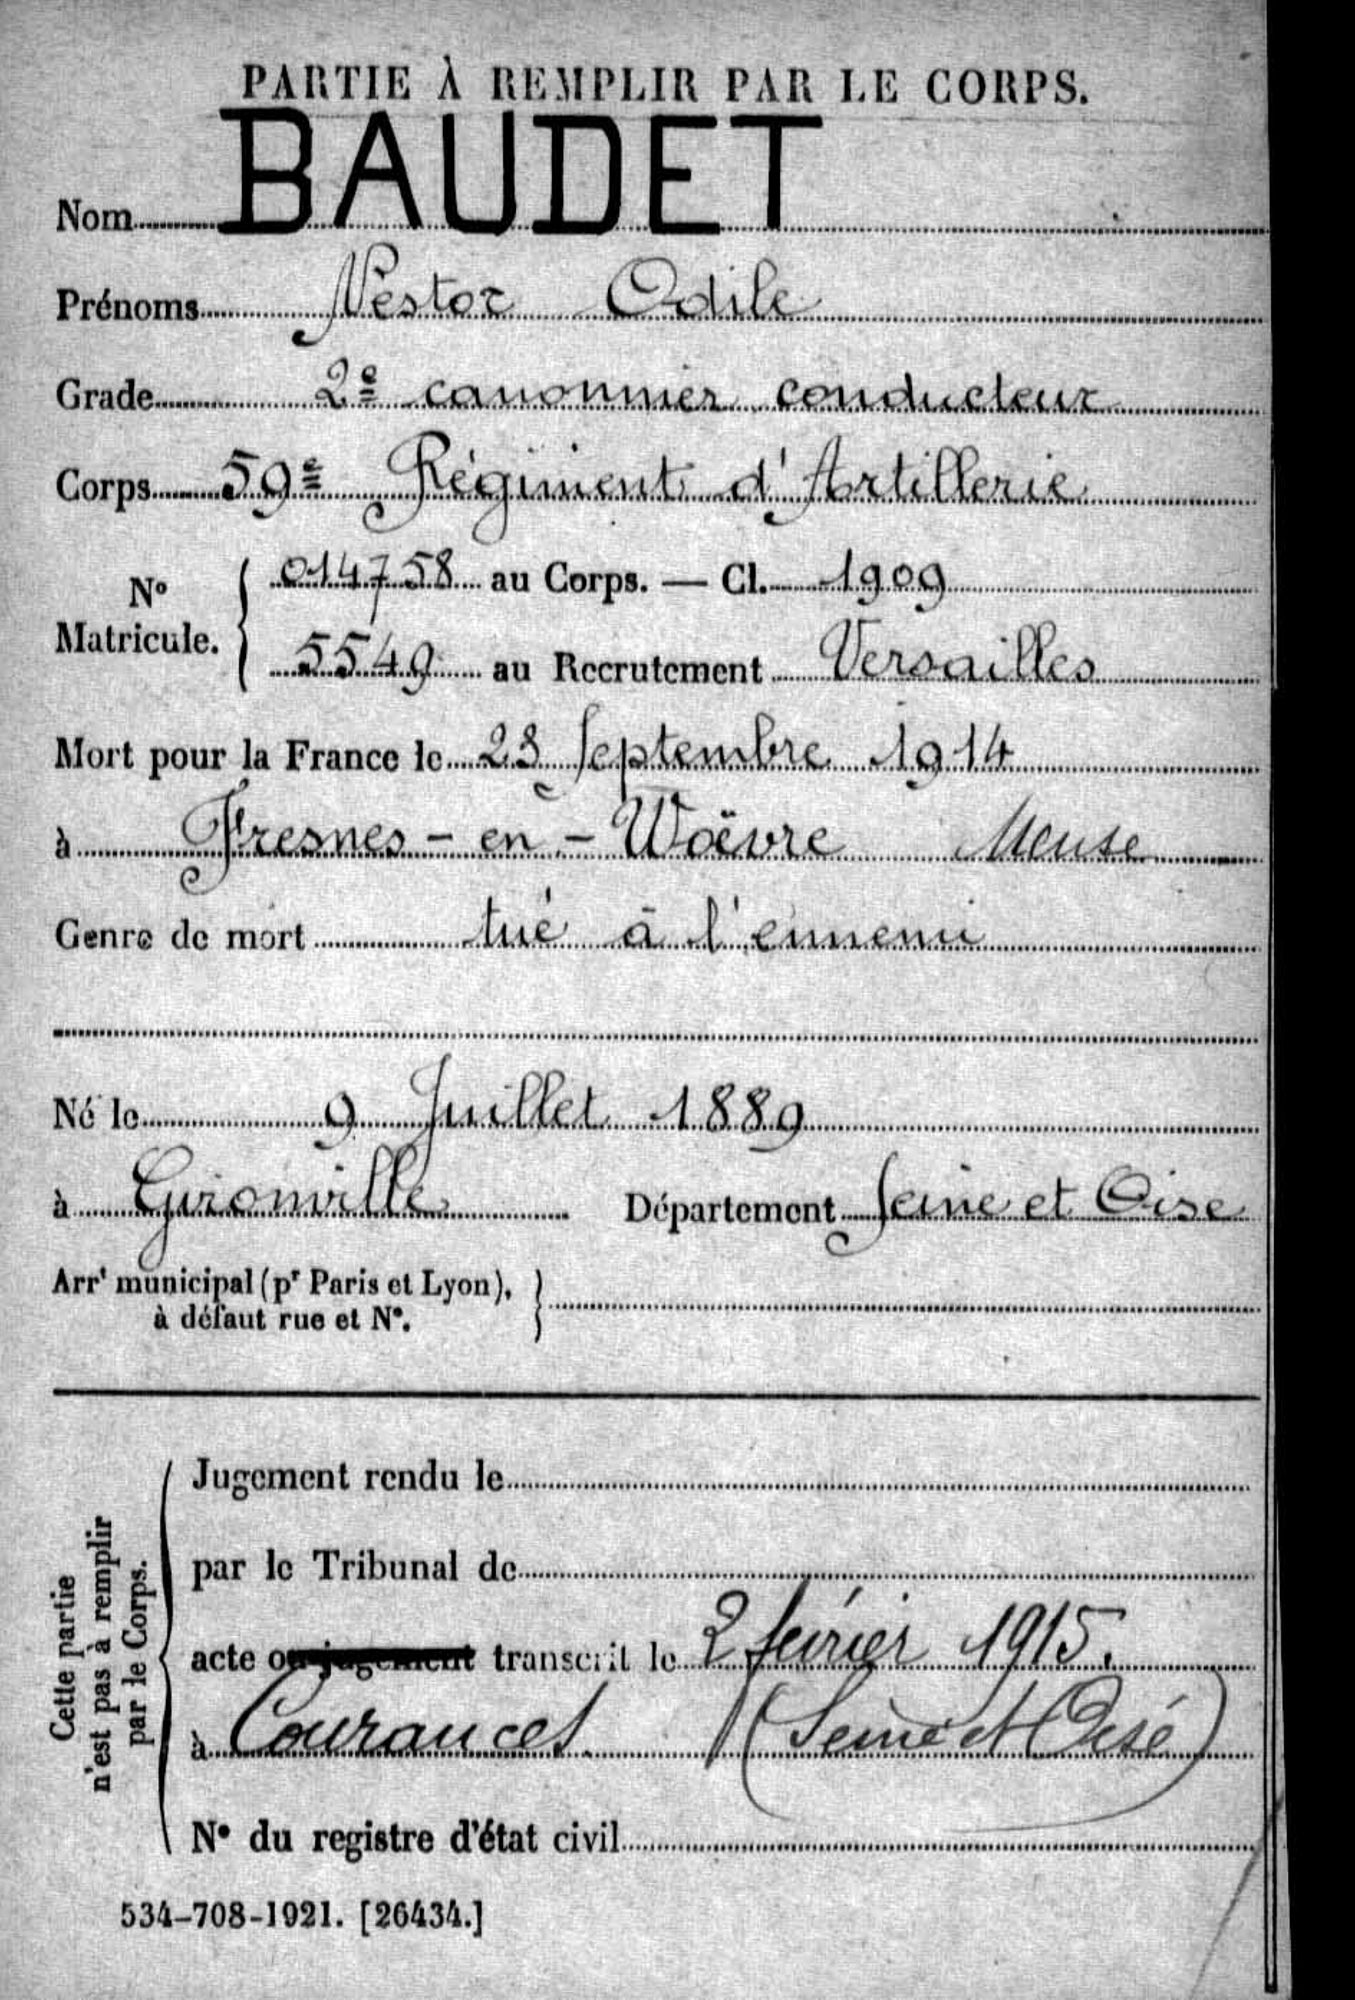 PARTIE À REMPLIR PAR LE CORPS.
Nom BAUDET
Prénoms Nestor Odile
Grade 2e canonnier conducteur
Corps 59e Régiment d'Artillerie
No Matricule. 014758 au Corps. — Cl. 1909
5549 au Recrutement Versailles
Mort pour la France le 23 Septembre 1914
à Fresnes-en-Woëvre Meuse
Genre de mort tué à l'ennemi
Né le 9 Juillet 1889
à Gironville Département Seine et Oise
Arrt municipal (pr Paris et Lyon),
à défaut rue et No.
Cette partie
n'est pas à remplir
par le Corps.
Jugement rendu le
par le Tribunal de
acte ou jugement transcrit le 2 février 1915.
à Courances (Seine et Oise)
No du registre d'état civil
534-708-1921. [26434.]